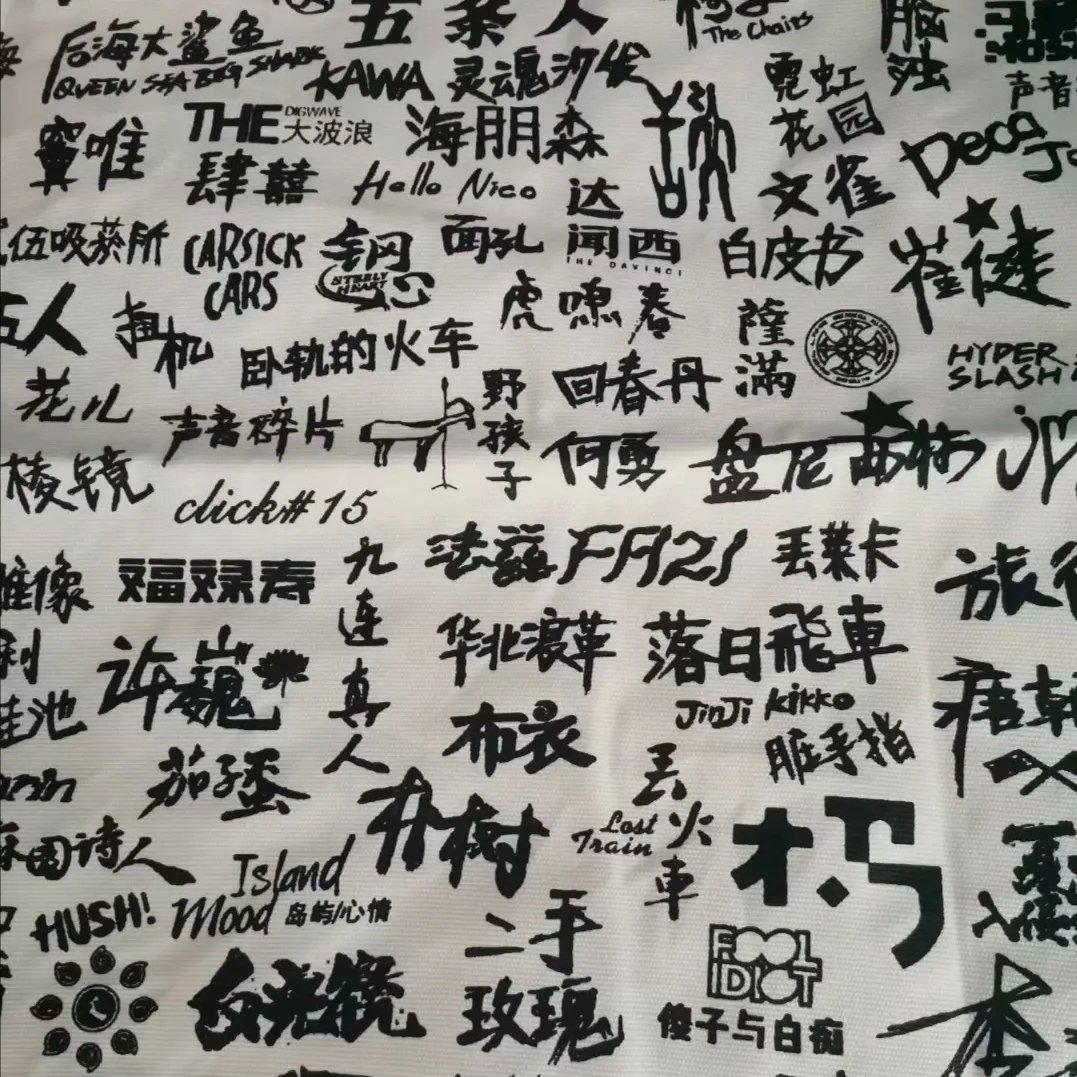 后海大鲨鱼
QUEEN SEA BIG SHARK
五条人
The Chairs
脑浊
声音
KAWA
灵魂沙发
霓虹花园
窦唯
THE
DIGWAVE
大波浪
海朋森
肆囍
Hello Nico
达闻西
THE DAVINCI
文雀
Deca
伍吸菸所
CARSICK CARS
钢心
STEELY HEART
面孔
白皮书
崔健
五人
扭机
虎啸春
隆满
卧轨的火车
HYPER SLASH
花儿
声音碎片
野孩子
回春丹
何勇
盘尼西林
棱镜
click#15
法兹FAZI
丢莱卡
九连真人
福禄寿
旅行
许巍
华北浪革
落日飛車
唐朝
JinJi kikko
布衣
脏手指
茄子蛋
朴樹
丢火車
Lost Train
杩
园诗人
Island Mood
岛屿心情
HUSH!
二手玫瑰
反光镜
FOOL IDIOT
傻子与白痴